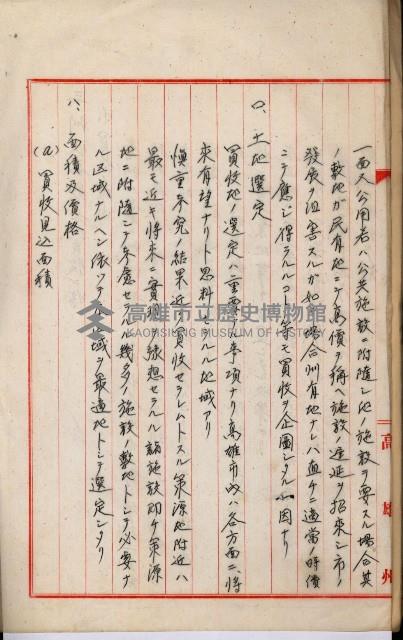 一面又公用若ハ公共施設ニ附随シ他ノ施設ヲ要スル場合其
ノ敷地ガ民有地ニテ高價ヲ稱ヘ施設ノ遅延ヲ招来シ市ノ
發展ヲ沮害スルガ如キ場合州有地ナレハ直チニ適當ノ時價
ニテ應ジ得ラルルコト等モ買收ヲ企圖シタル一因ナリ
ロ、土地選定
買收地ノ選定ハ重要ナル事項ナリ高雄市内ハ各方面ニ将
来有望ナリト思料セラルル地域アリ
慎重考究ノ結果近ク買收セラレムトスル策源地附近ハ
最モ近キ将来ニ實現ヲ豫想セラルル諸施設即チ策源
地ニ附随シテ考慮セラルル幾多ノ施設ノ敷地トシテ必要ナ
ル区域ナルヘシ依ツテ本区域ヲ最適地トシテ選定シタリ
ハ、面積及價格
(a) 買收見込面積
高雄州
高雄市立歷史博物館
KAOHSIUNG MUSEUM OF HISTORY